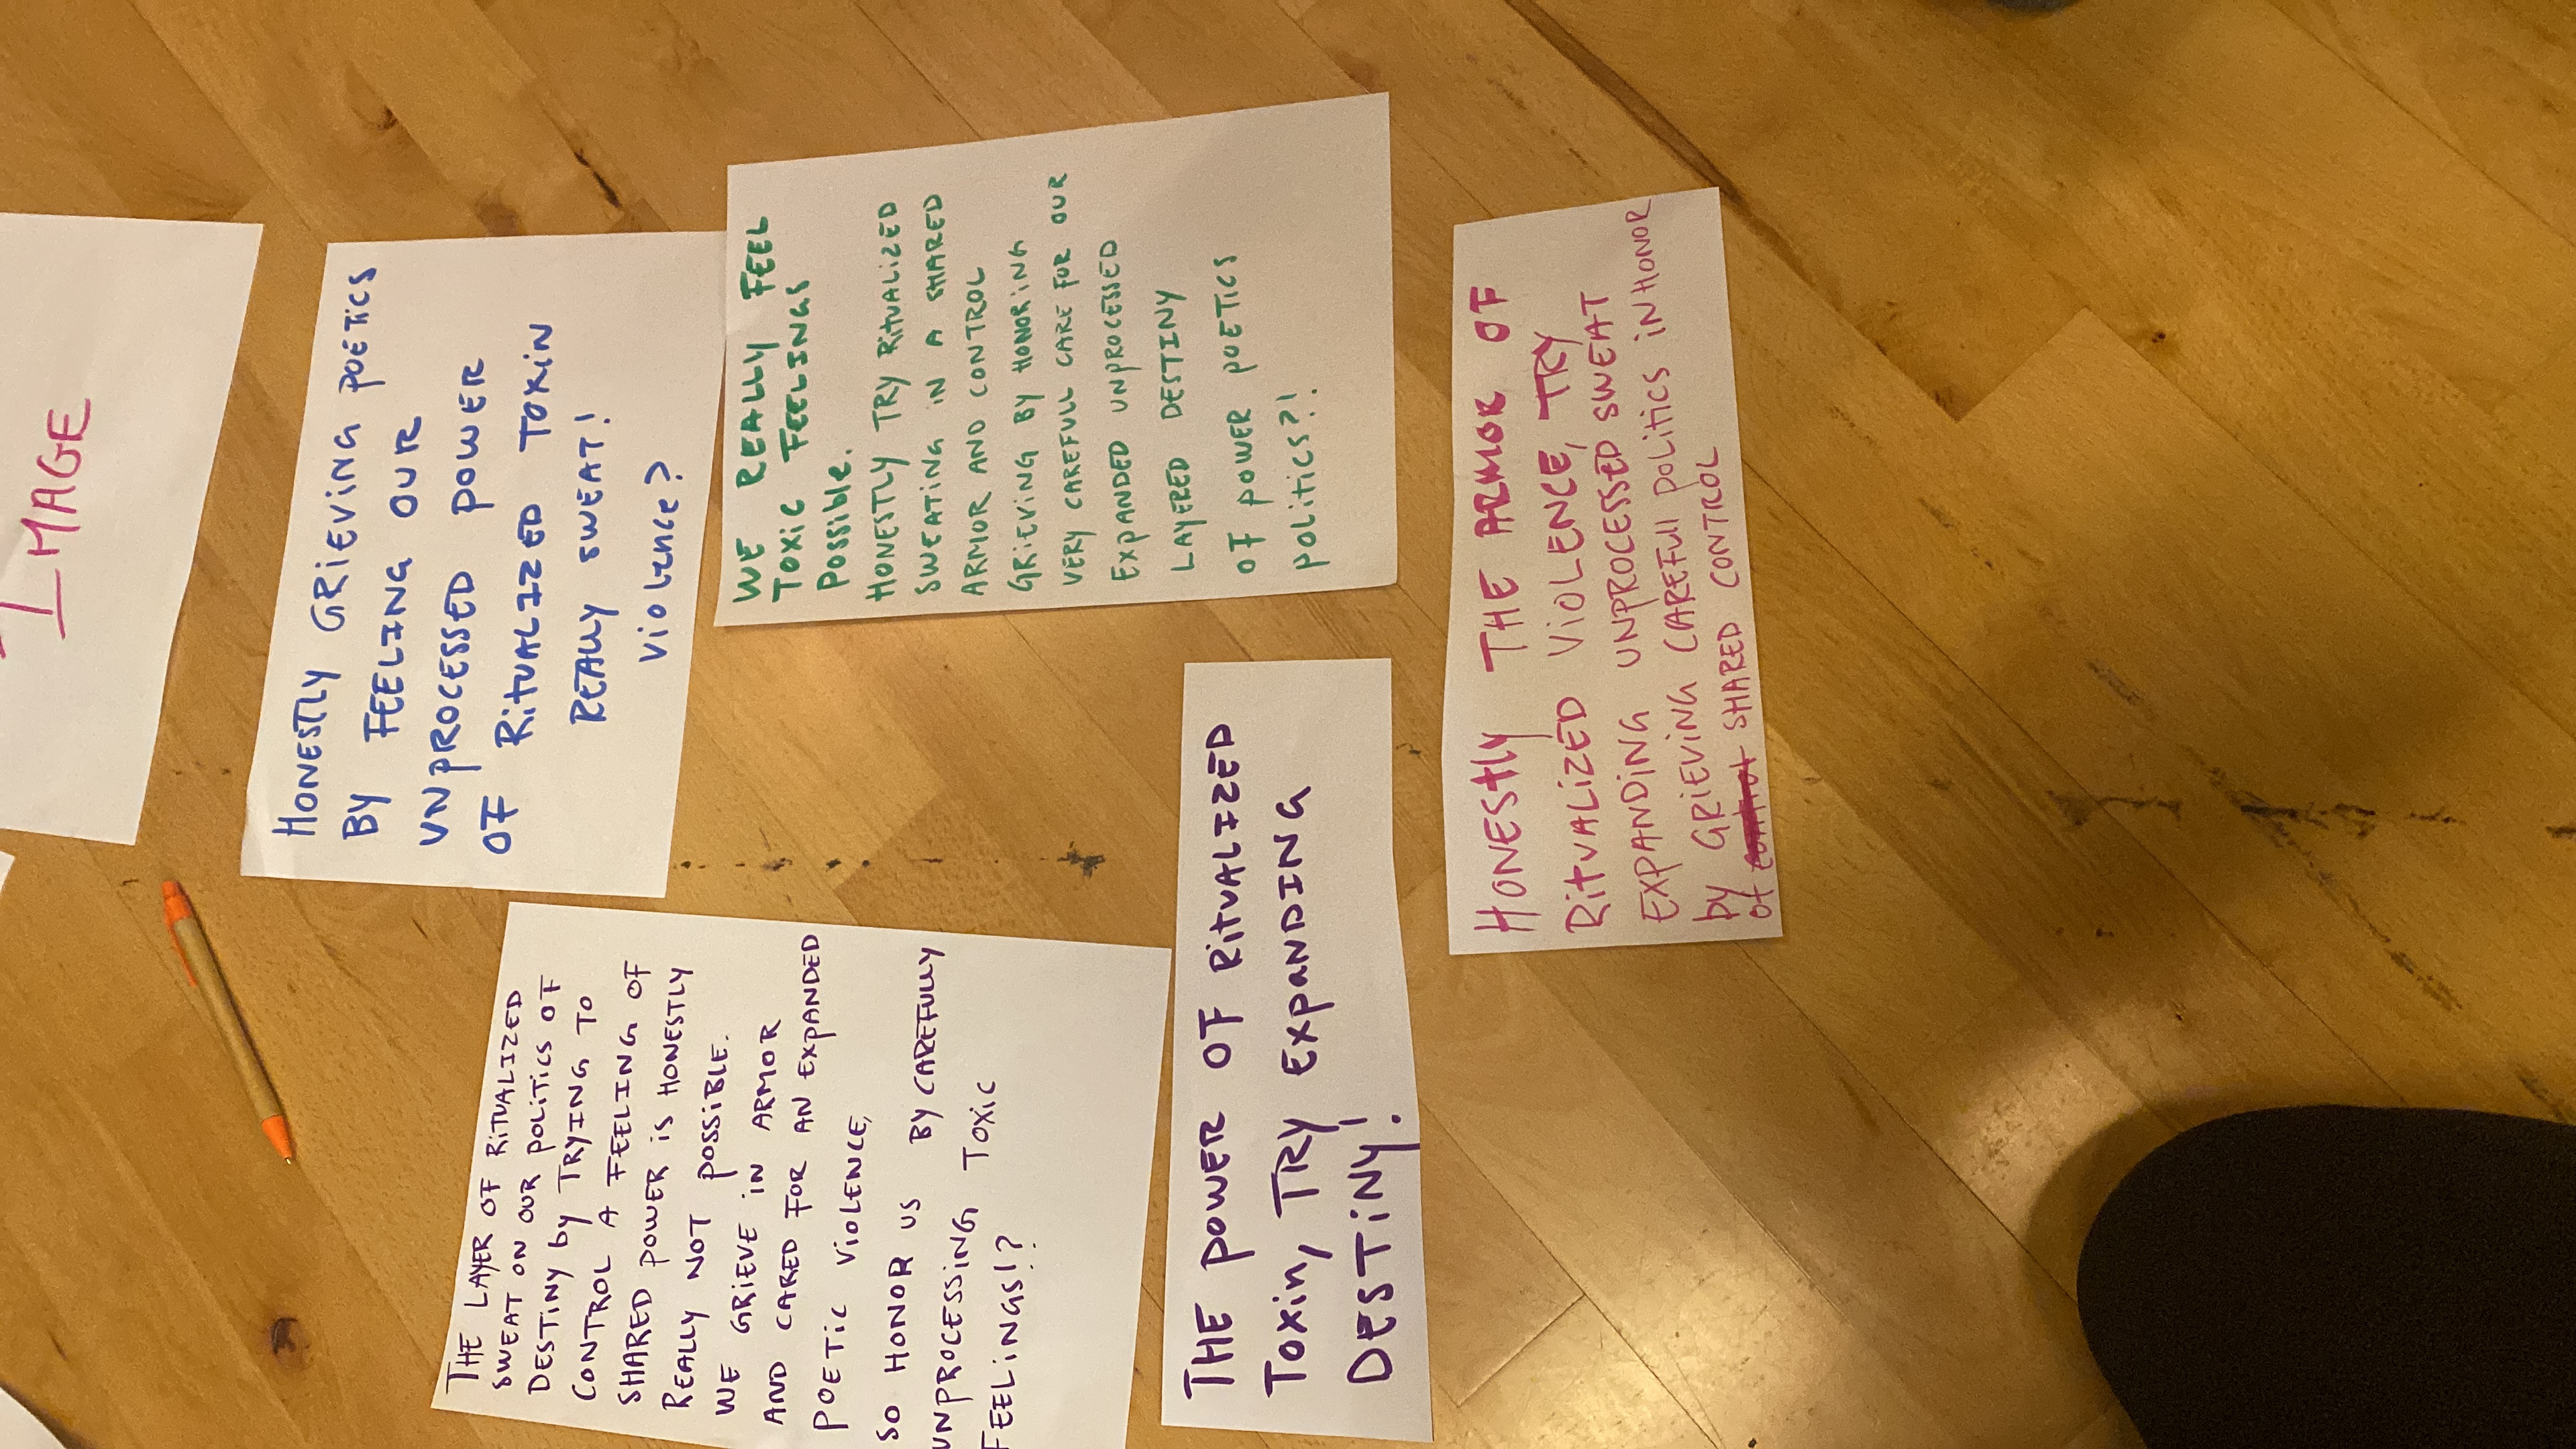 IMAGE
HONESTLY GRIEVING POETICS
BY FEELING OUR
UNPROCESSED POWER
OF RITUALIZED TOXIN
REALLY SWEAT!
Violence?
WE REALLY FEEL
TOXIC FEELINGS
Possible.
HONESTLY TRY RITUALIZED
SWEATING IN A SHARED
ARMOR AND CONTROL
GRIEVING BY HONORING
VERY CAREFULL CARE FOR OUR
EXPANDED UNPROCESSED
LAYERED DESTINY
OF POWER POETICS
POLITICS?!
THE LAYER OF RITUALIZED
SWEAT ON OUR POLITICS OF
DESTINY by TRYING TO
CONTROL A FEELING OF
SHARED POWER IS HONESTLY
REALLY NOT POSSIBLE.
WE GRIEVE IN ARMOR
AND CARED FOR AN EXPANDED
POETIC VIOLENCE,
SO HONOR US BY CAREFULLY
UNPROCESSING TOXIC
FEELINGS!?
THE POWER OF RITUALIZED
TOXIN, TRY EXPANDING
DESTINY!
HONESTLY THE ARMOR OF
RITUALIZED VIOLENCE, TRY
EXPANDING UNPROCESSED SWEAT
by GRIEVING CAREFULL POLITICS IN HONOR
of SHARED CONTROL